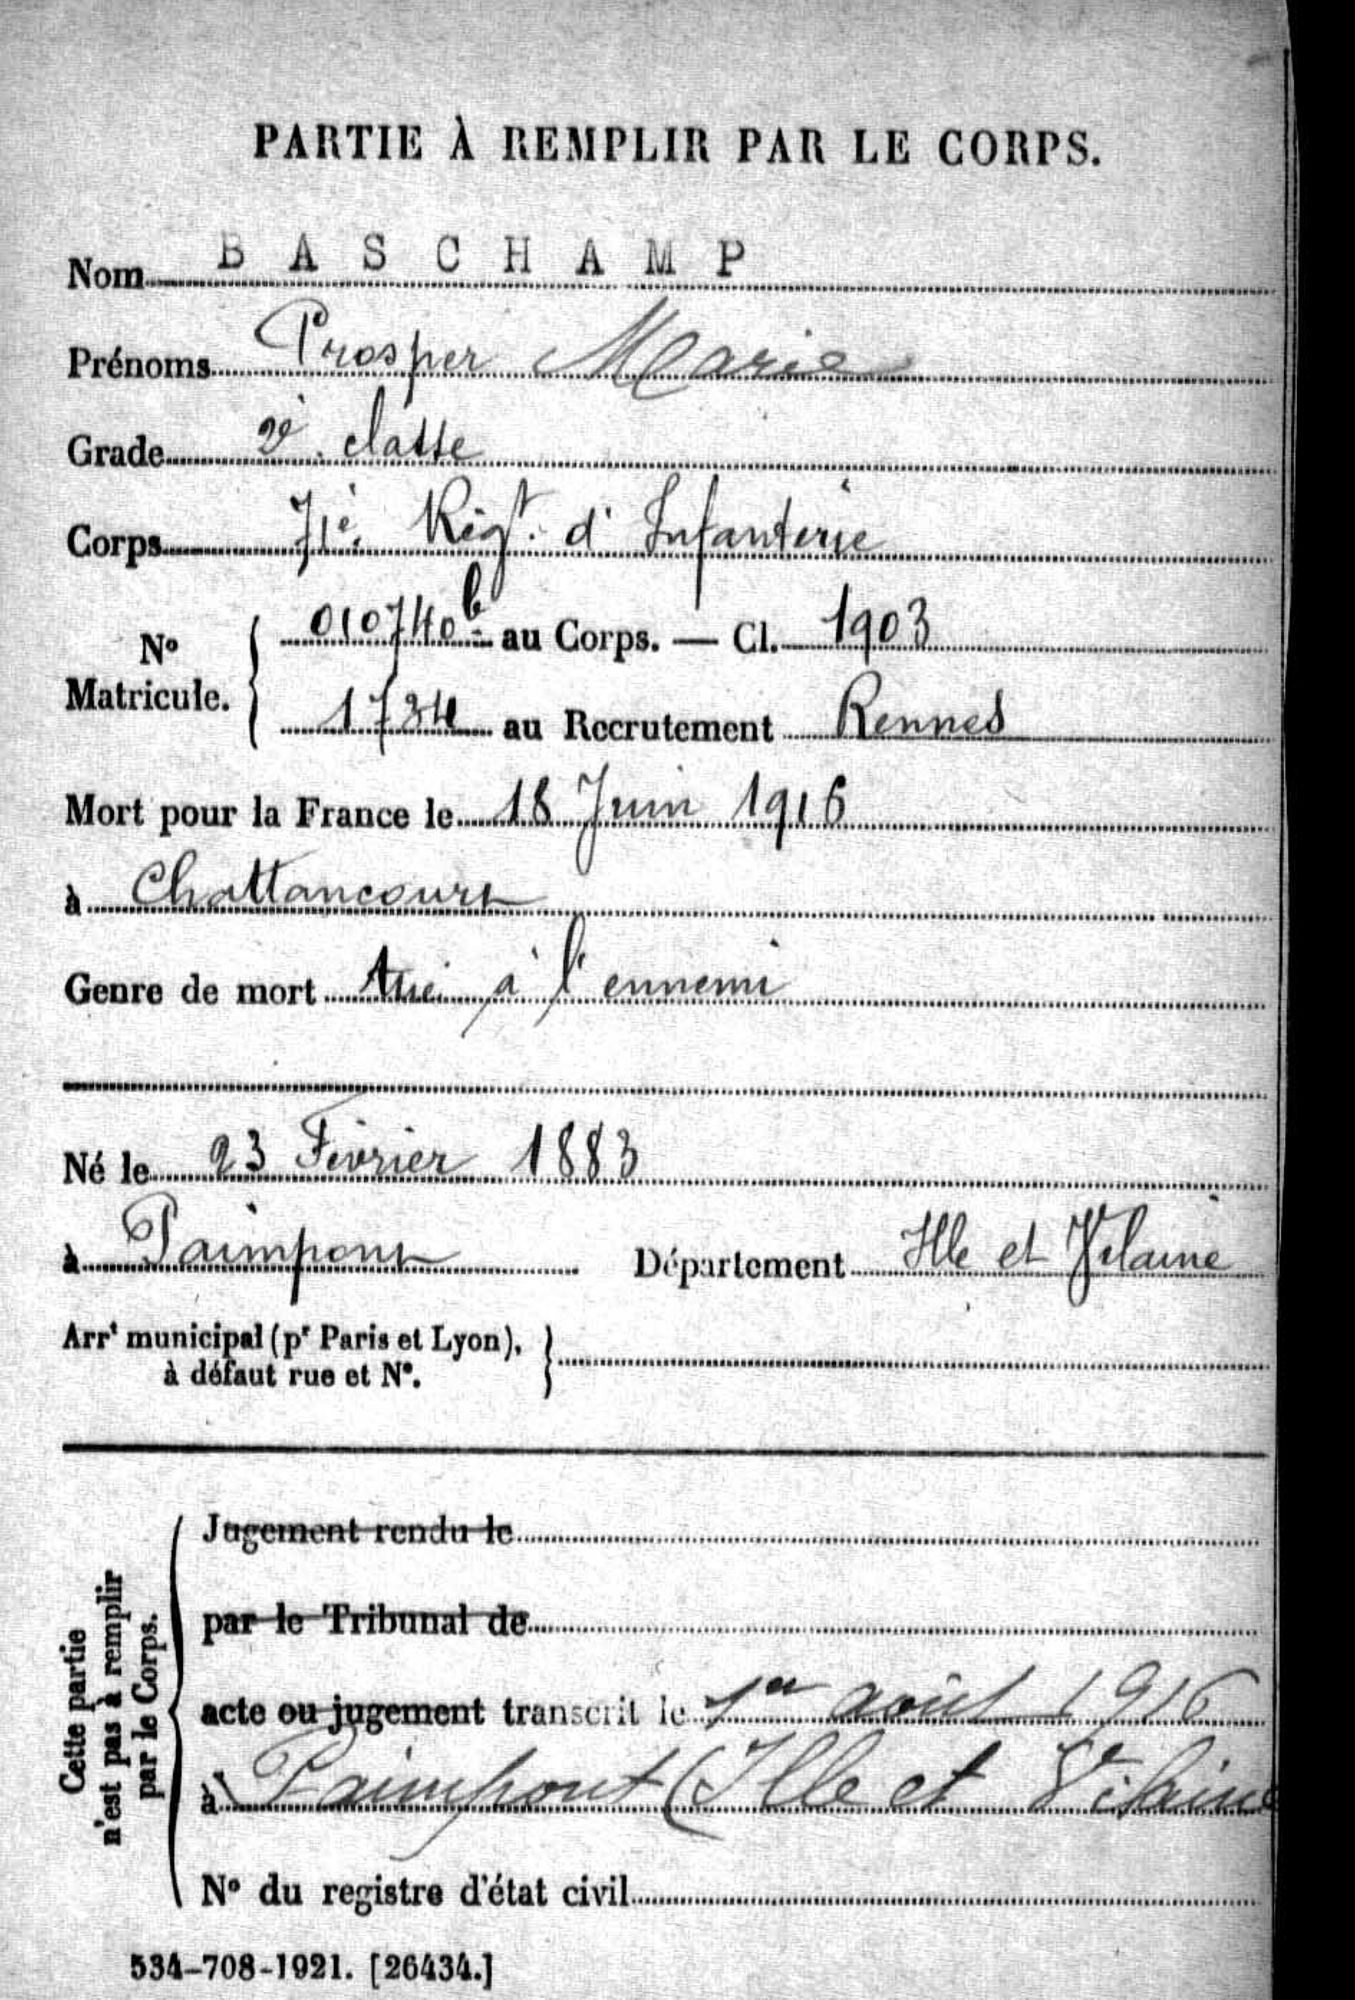 PARTIE À REMPLIR PAR LE CORPS.
Nom BASCHAMP
Prénoms Prosper Marie
Grade 2è classe
Corps 71è Régt. d'Infanterie
No Matricule. 010740b au Corps. — Cl. 1903
1734 au Recrutement Rennes
Mort pour la France le 18 Juin 1916
à Chattancourt
Genre de mort tué à l'ennemi
Né le 23 Février 1883
à Paimpont Département Ille et Vilaine
Arrt municipal (pr Paris et Lyon),
à défaut rue et No.
Cette partie
n'est pas à remplir
par le Corps.
Jugement rendu le
par le Tribunal de
acte ou jugement transcrit le 1er août 1916
à Paimpont (Ille et Vilaine
No du registre d'état civil
534-708-1921. [26434.]